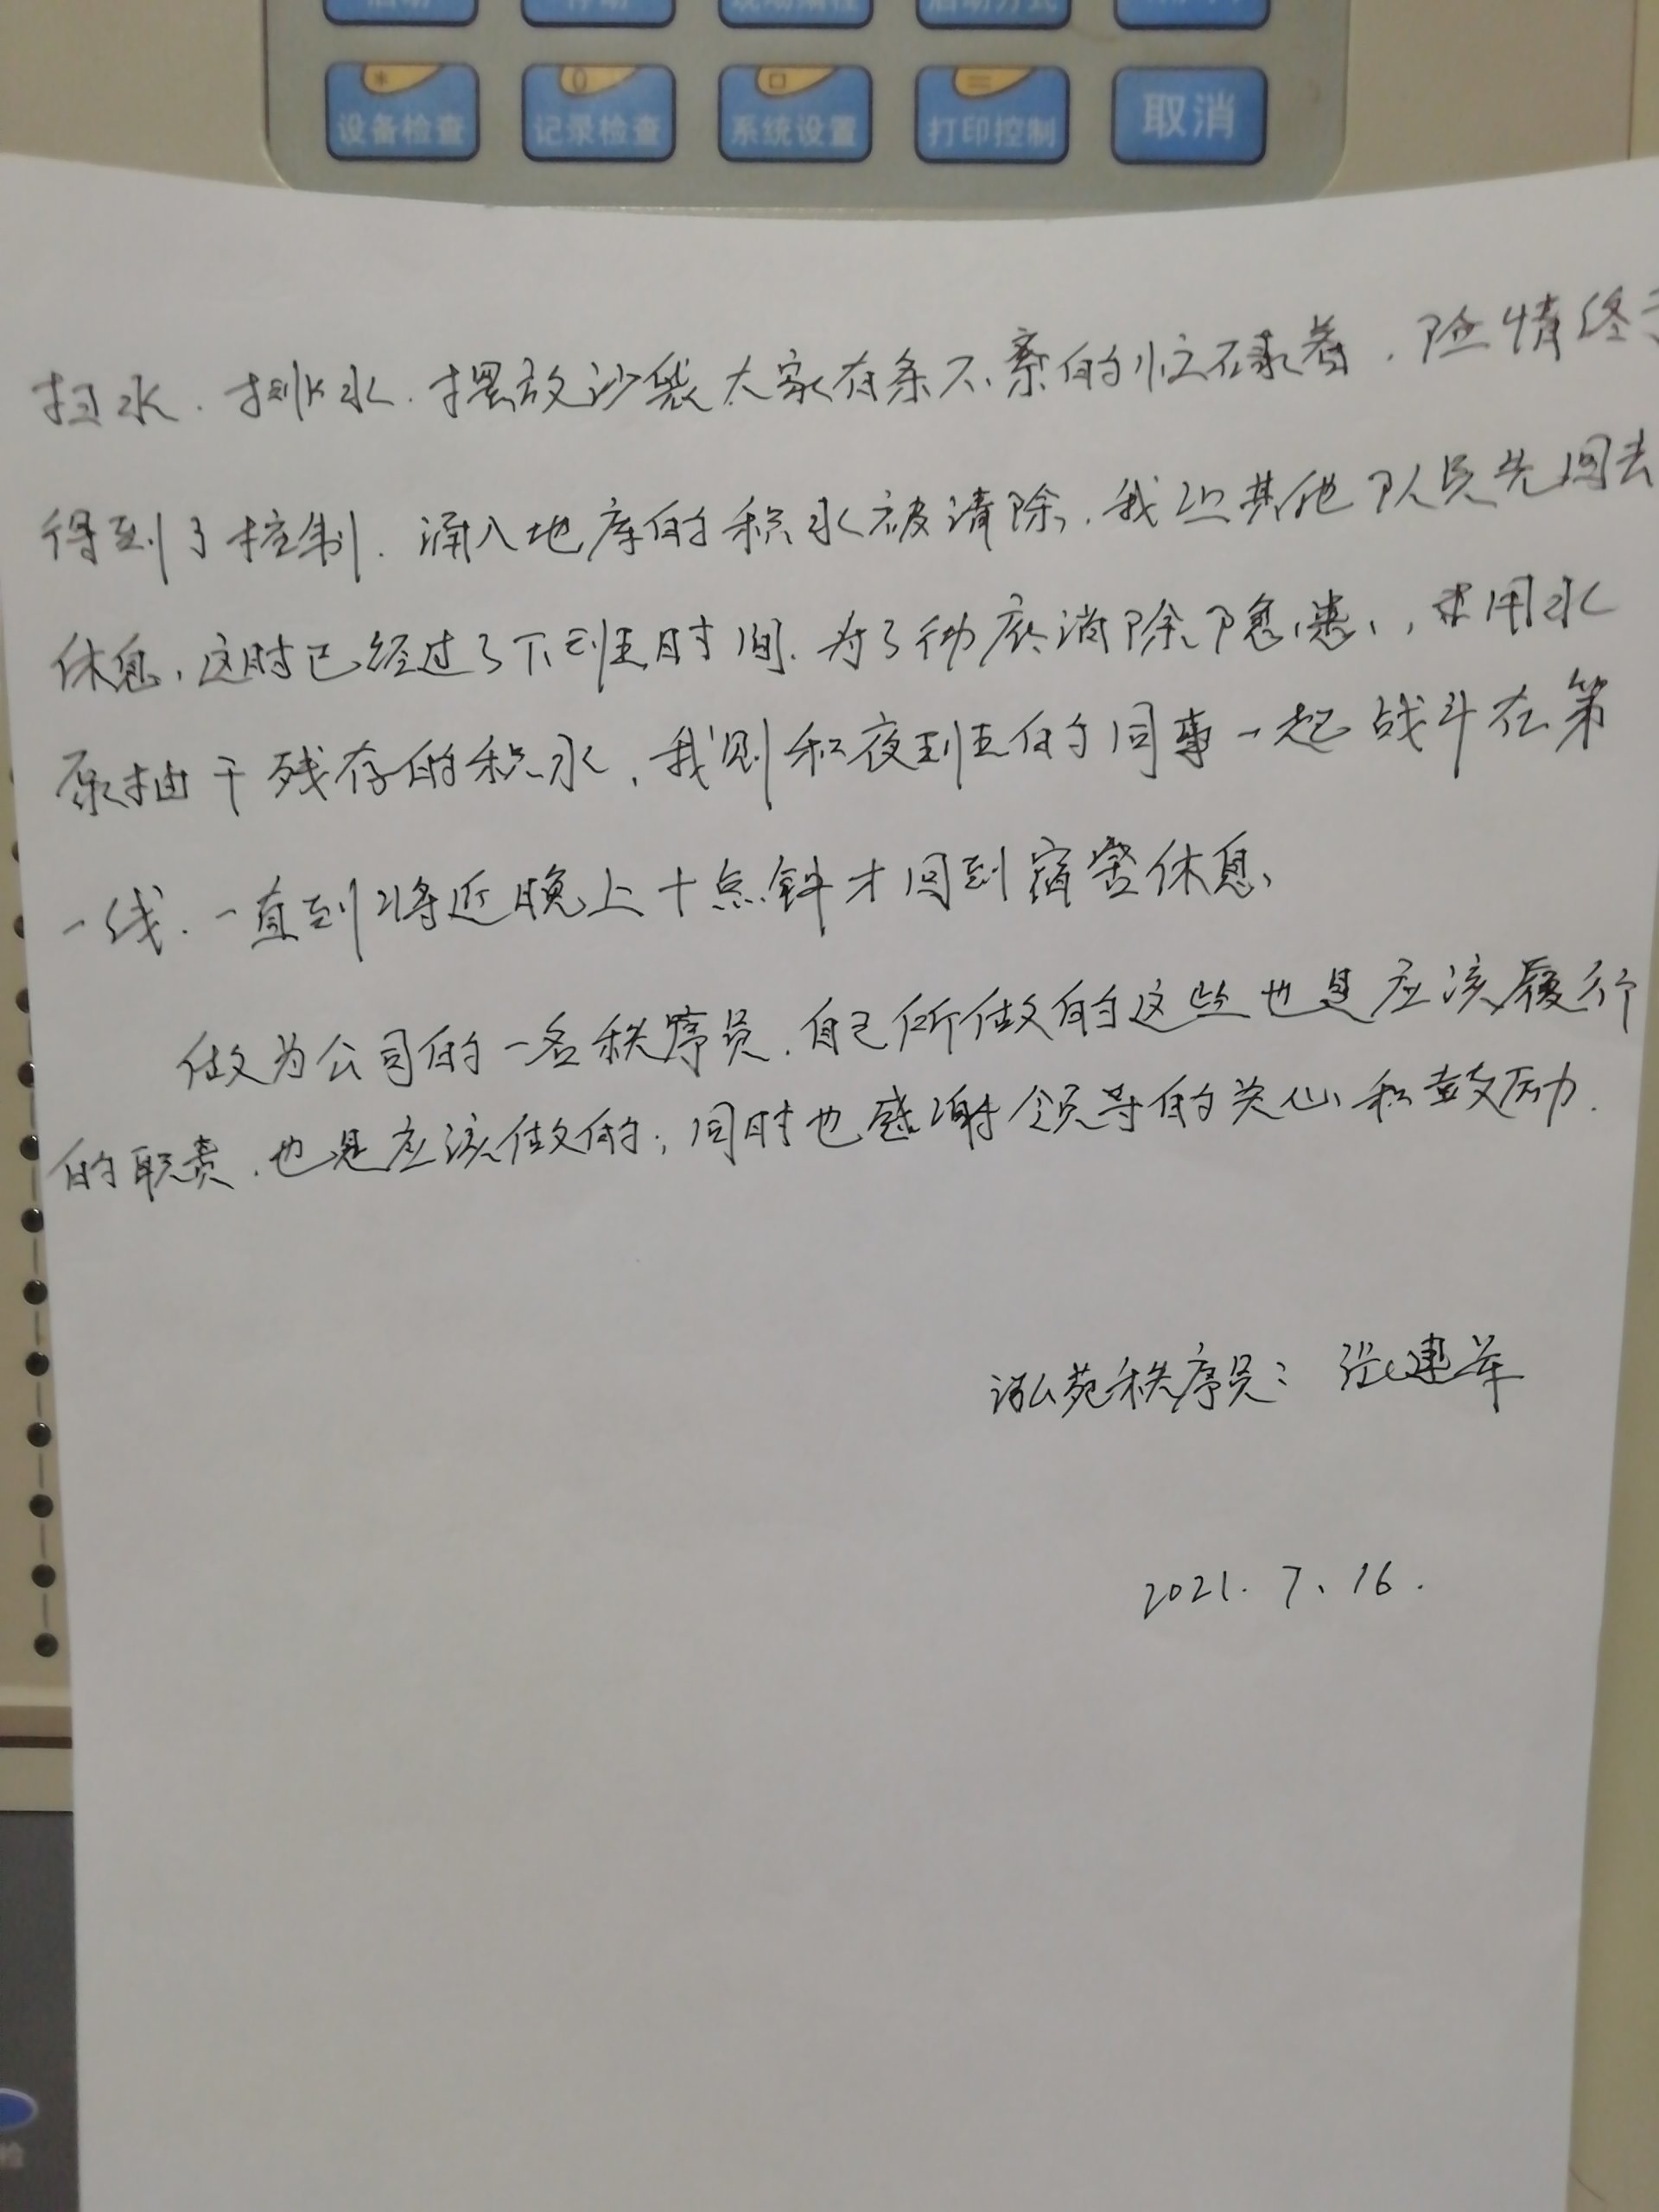 设备检查 记录检查 系统设置 打印控制 取消
扫水.排水.摆放沙袋大家有条不紊的忙碌着.险情终于
得到了控制.涌入地库的积水被清除.我让其他队员先回去
休息,这时已经过了下班时间.为了彻底消除隐患,采用水
泵抽干残存的积水,我则和夜班的同事一起战斗在第
一线.一直到将近晚上十点钟才回到宿舍休息、
做为公司的一名秩序员.自己所做的这些也是应该履行
的职责.也是应该做的,同时也感谢领导的关心和鼓励.
泓苑秩序员:张建军
2021.7、16.